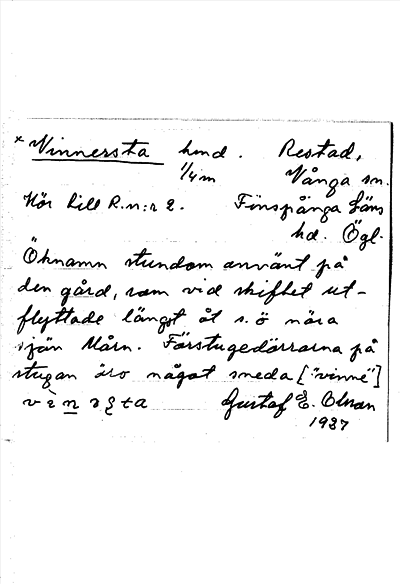 × Vinnersta hmd. Restad,
1/4 m Vånga sn.
Hör till R.n:r 2. Finspånga läns
hd. Ögl.
Öknamn stundom använt på
den gård, som vid skiftet ut-
flyttade längst åt s.ö nära
sjön Mårn. Förstugedörrarna på
stugan äro något sneda [: "vinne"]
Gustaf E. Olsson
1937